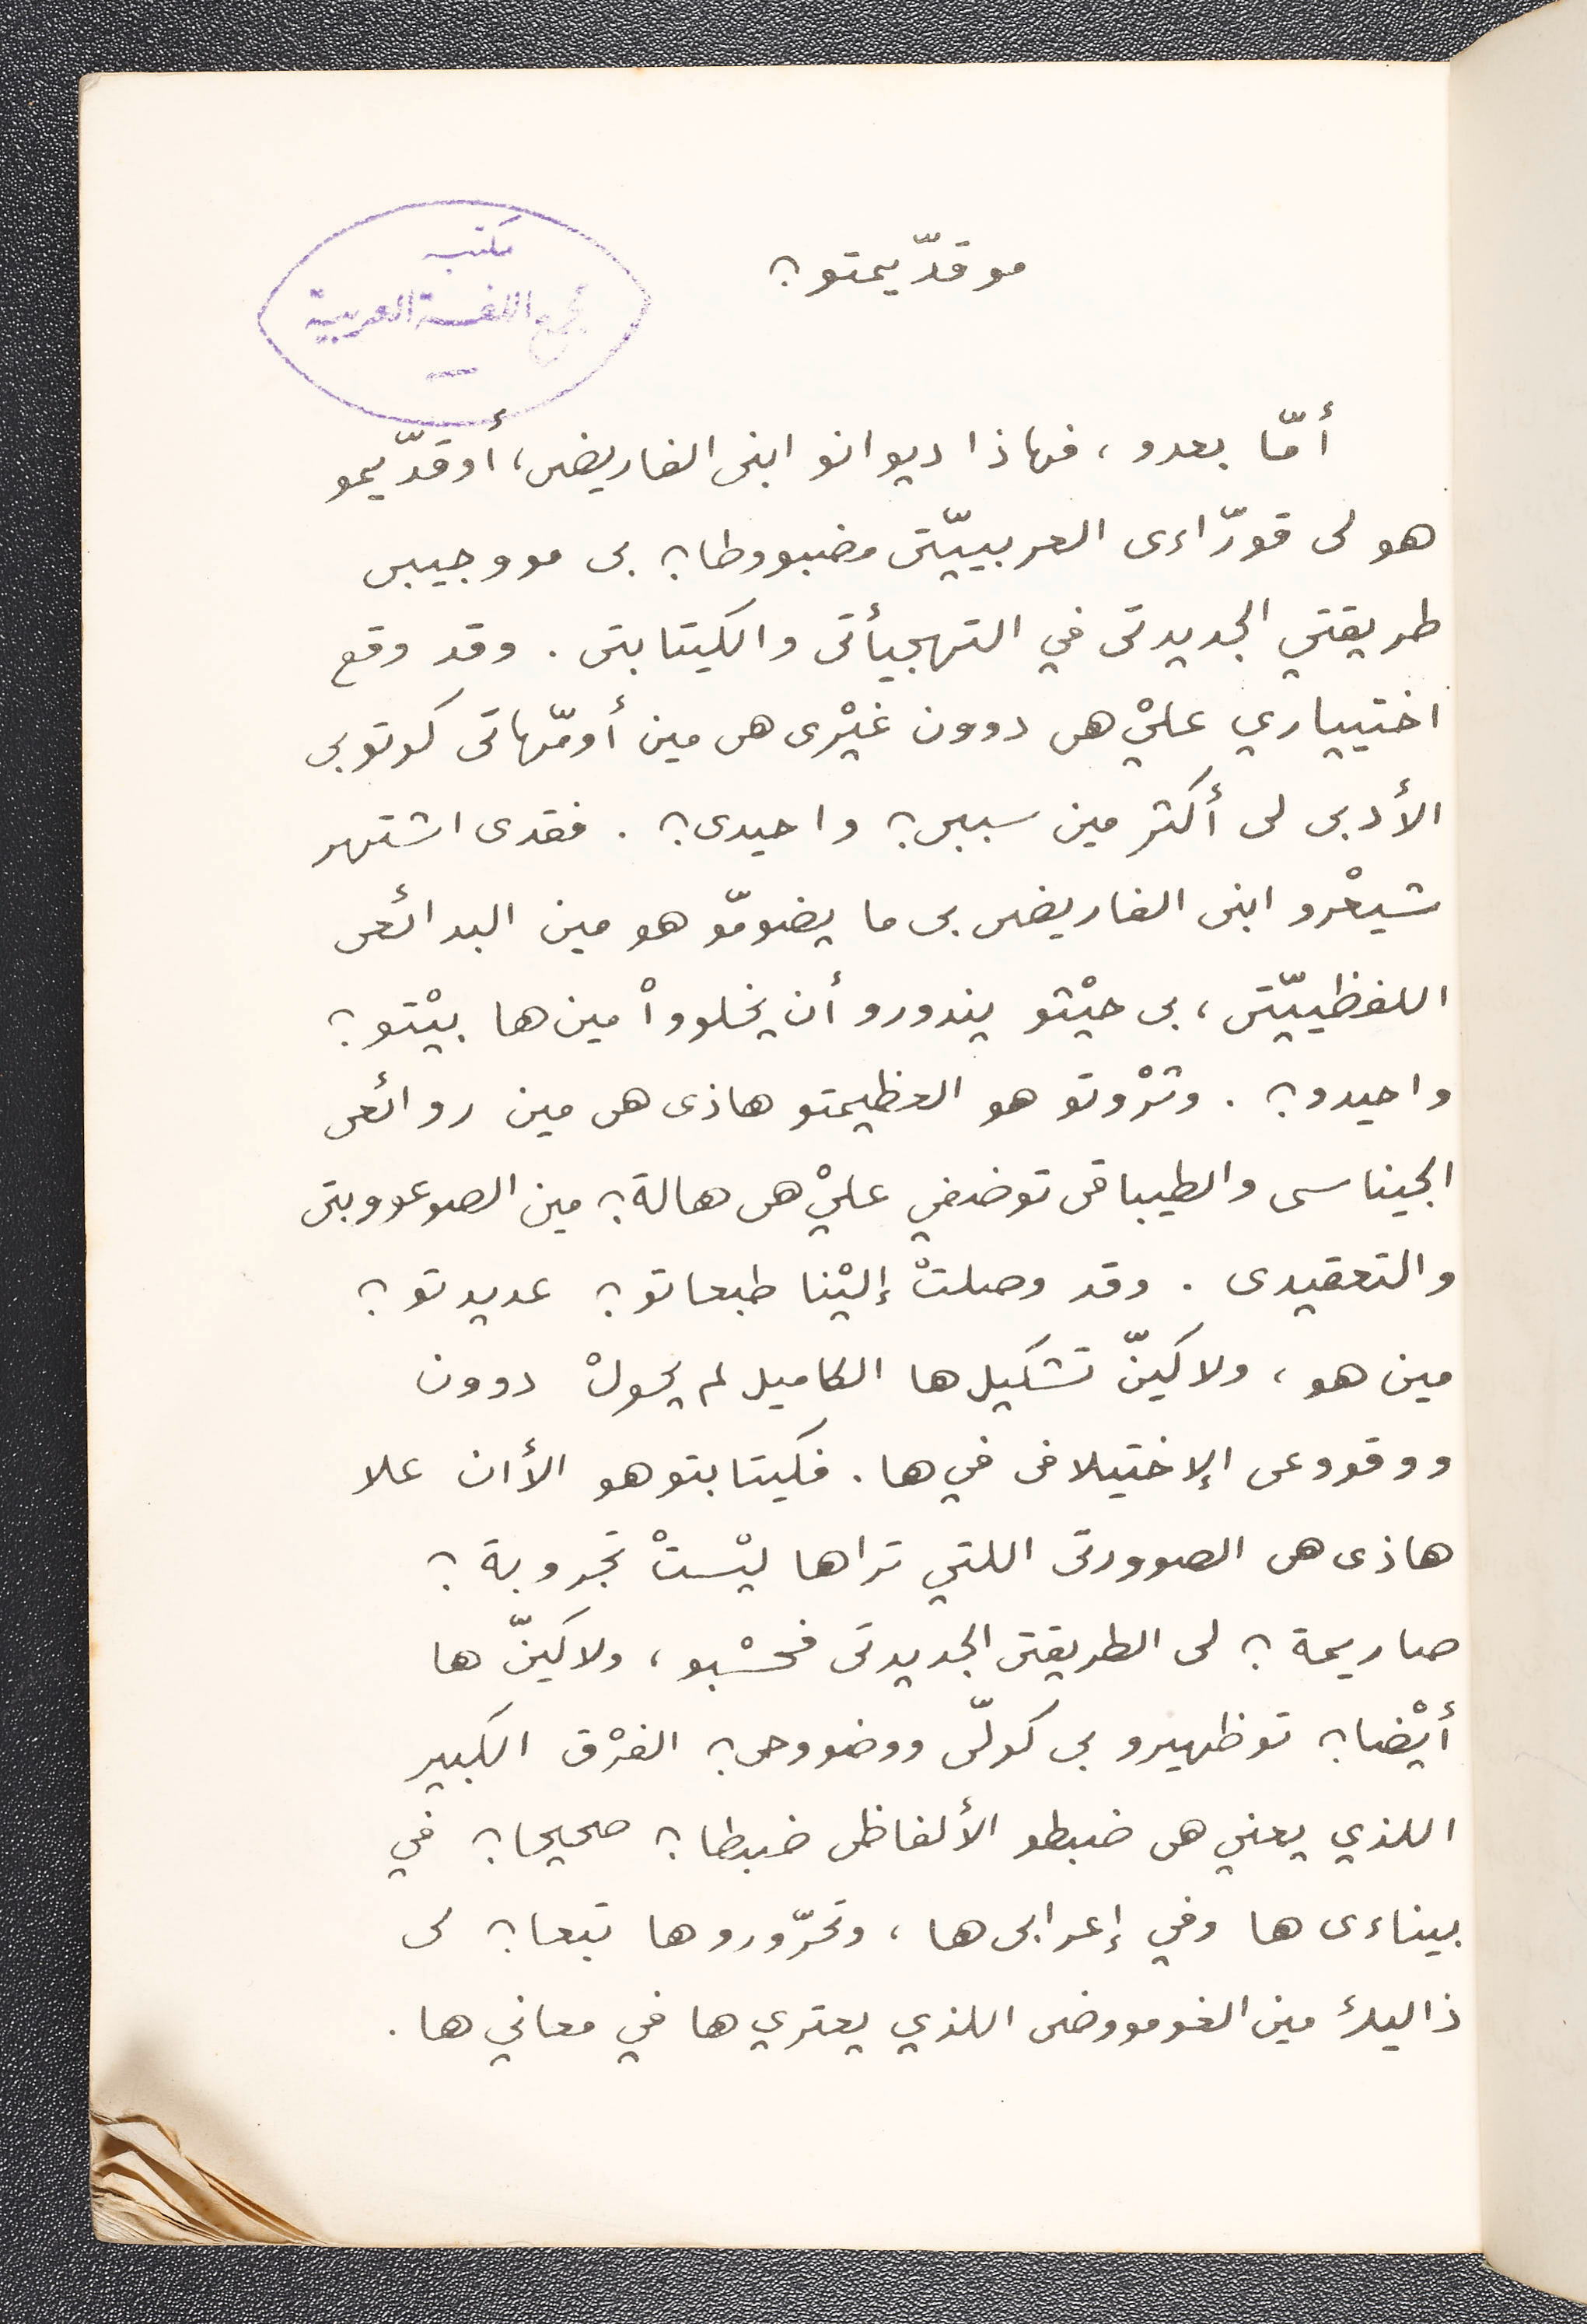 مكتبه
مجمع اللغة العربية
موقدّيمتو؟
أمّا بعدو، فهاذا ديوانو ابنى الفاريضى، أوقدّيمو
هو لى قورّاءى العربييّتى مضبووطا؟ بى مووجيبى
طريقتي الجديدتى في التهجيأتى والكيتابتى. وقد وقع
اختيياري عليْ هى دوون غيْرى هى مين أومّهاتى كوتوبى
الأدبى لى أكثر مين سببى؟ واحيدى؟. فقدى اشتهر
شيعْرو ابنى الفاريضى بى ما يضومّو هو مين البدائعى
اللفظييّتى، بى حيْثو يندورو أن يخلووا مين ها بيْتو؟
واحيدو؟. وثرْوتو هو العظيمتو هاذى هى مين روائعى
الجيناسى والطيباقى توضفي عليْ هى هالة؟ مين الصوعووبتى
والتعقيدى. وقد وصلتْ إليْنا طبعاتو؟ عديدتو؟
مين هو، ولاكينّ تشكيل ها الكاميل لم يحولْ دوون
ووقووعى الإختيلافى في ها. فكيتابتو هو الأان علا
هاذى هى الصوورتى اللتي تراها ليْستْ تجروبة؟
صاريمة؟ لى الطريقتى الجديدتى فحسْبو، ولاكينّ ها
أيْضا؟ توظهيرو بى كولّى ووضووحى؟ الفرْق الكبير
اللذي يعني هى ضبطو الألفاظى ضبطا؟ صحيحا؟ في
بيناءى ها وفي إعرابى ها، وتحرّوروها تبعا؟ لى
ذاليك مين الغومووضى اللذي يعتري ها في معاني ها.